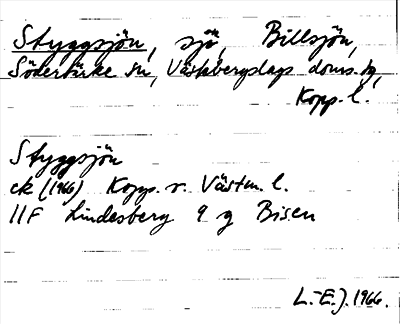 Styggsjön, sjö, Billsjön,
Söderbärke sn, Västerbergslags doms. tg,
Kopp. l.
Styggsjön
ek (1966) Kopp. o. Västm. l.
11F Lindesberg 9 g Bisen
L.-E.J. 1966.